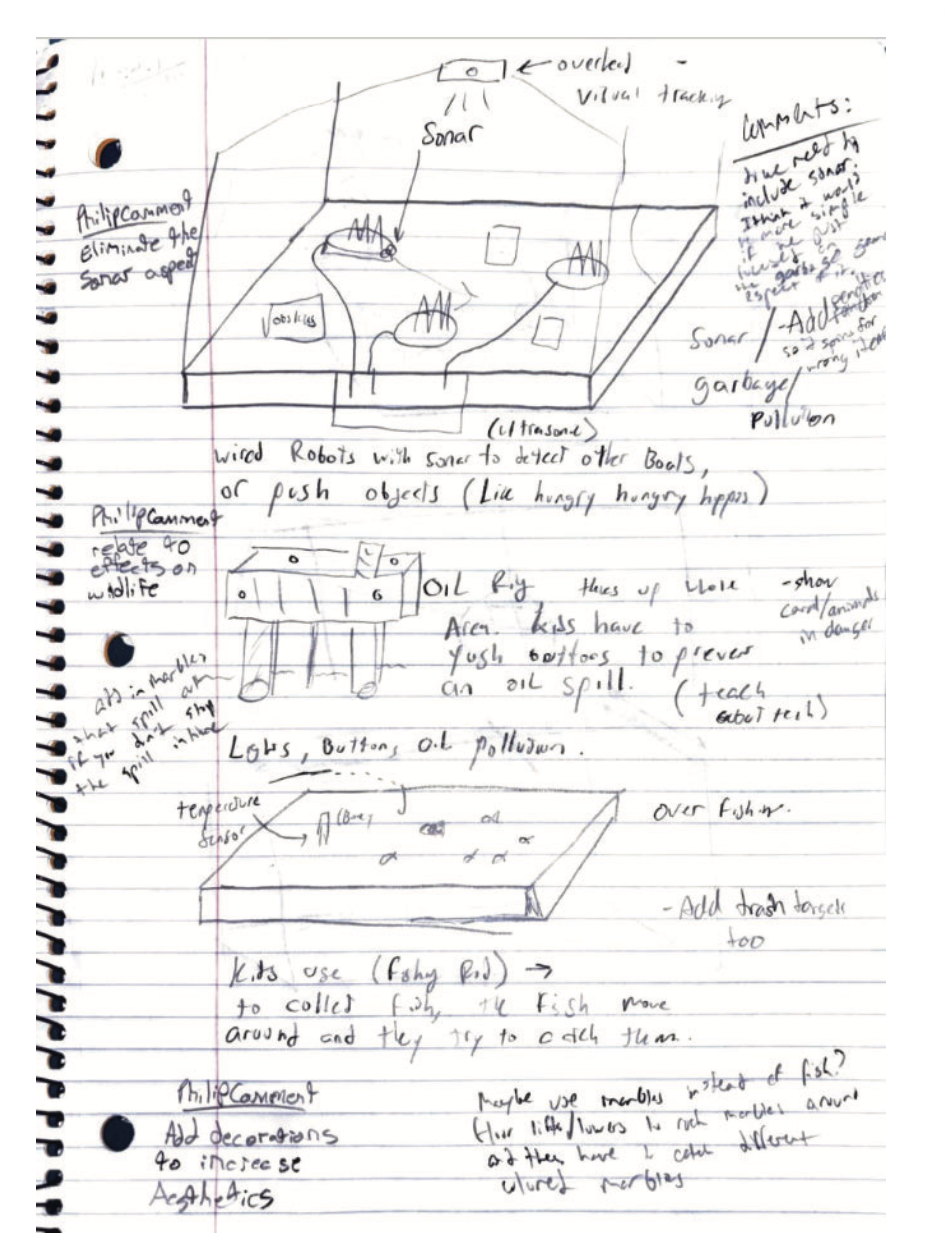 overhead -
Visual tracking
Sonar
Comments:
need to
include sonar.
I think it would
be more simple
if we just
focused on
the garbage
aspect of it.
Philip Comment
Eliminate the
Sonar aspect
Sonar /
garbage /
Pollution
-Add penalties
function
so it spins for
wrong item
(Ultrasonic)
wired Robots with sonar to detect other Boats,
or push objects (Like hungry hungry hippos)
Phillip Comment
relate to
effects on
wildlife
OIL Rig, takes up whole
Area. kids have to
push buttons to prevent
an oil spill. (teach
about tech)
-show
coral/animals
in danger
add in marbles
that spill out
if you don't stop
the spill in time
Lights, Buttons, Oil pollution.
temperature
sensor
(Buoy)
Over Fishing.
-Add trash targets
too
Kids use (Fishing Rod) →
to collect fish, the Fish move
around and they try to catch them.
Philip Comment
Add decorations
to increase
Aesthetics
Maybe use marbles instead of fish?
floor lifts/lowers to rock marbles around
and then have to catch different
coloured marbles